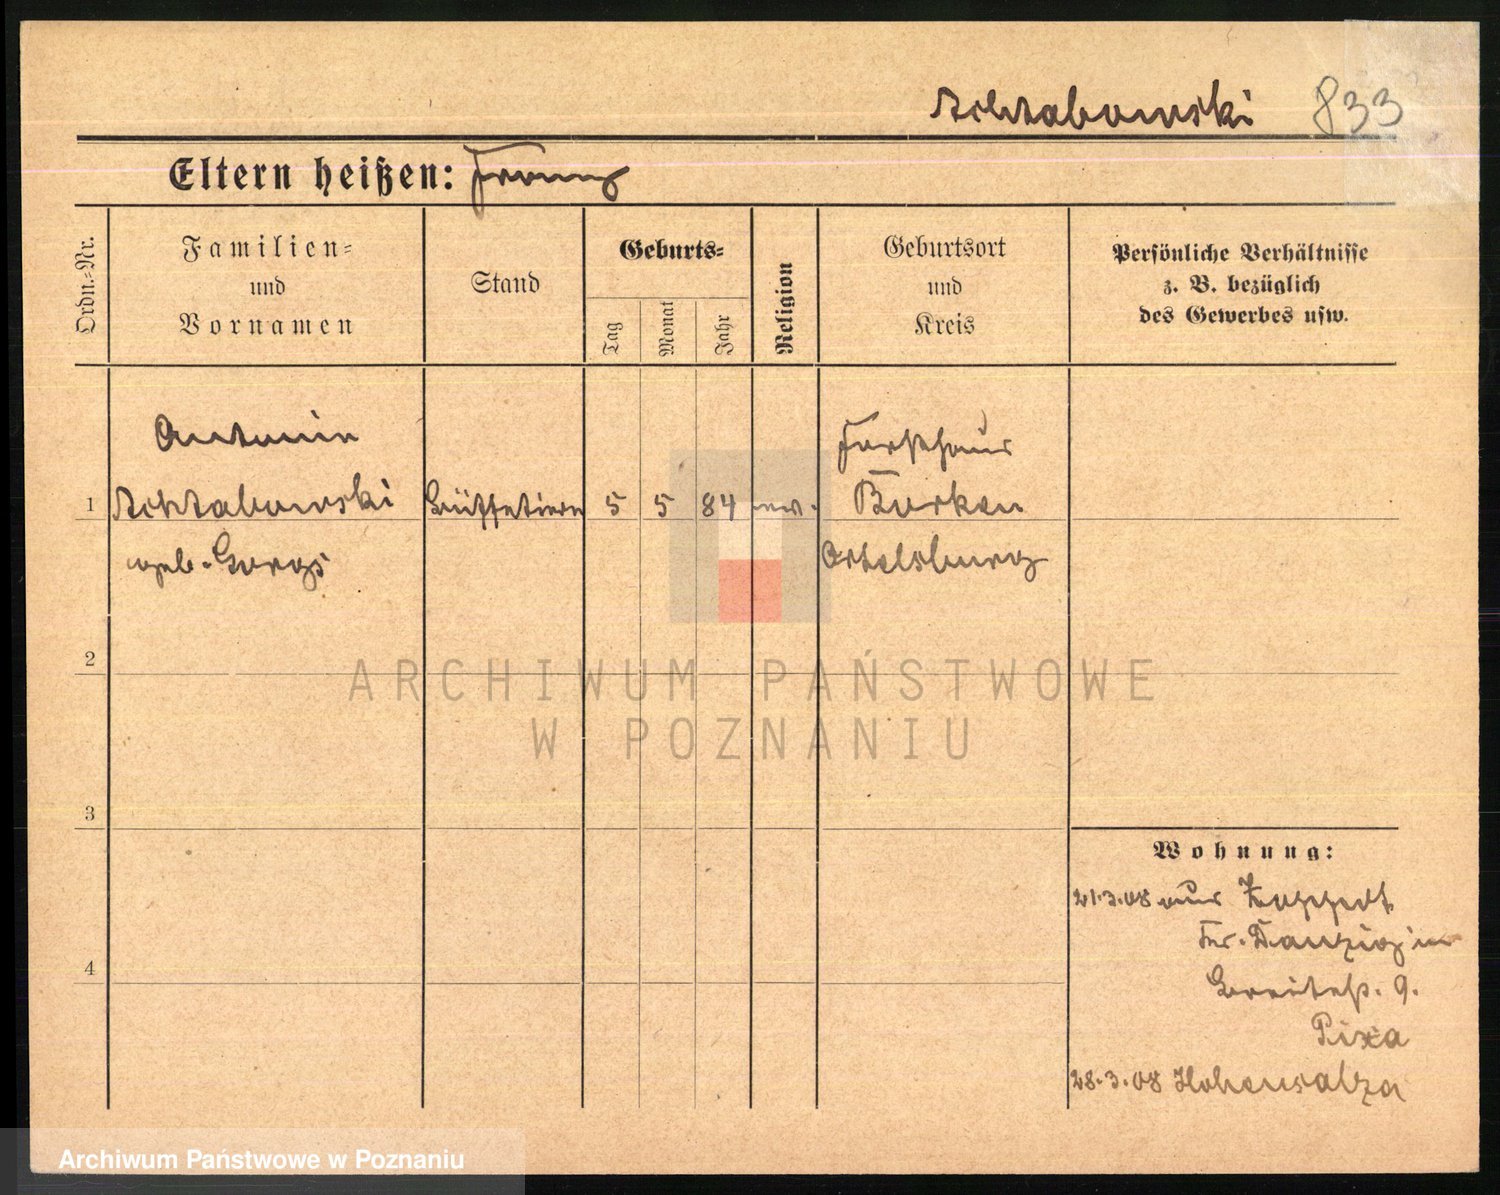 Achtabowski 833
Eltern heißen: Franz
Ordn.=Nr.
Familien=
und
Vornamen
Stand
Geburts=
Tag
Monat
Jahr
Religion
Geburtsort
und
Kreis
Persönliche Verhältnisse
z. B. bezüglich
des Gewerbes usw.
Antonie
1 Achtabowski Büffetiere 5 5 84 ev.
geb. Gorgs
Forsthaus
Borken
Ortelsburg
2
3
4
ARCHIWUM PAŃSTWOWE
W POZNANIU
Wohnung:
21.3.08 aus Zoppot
Kr. Danzig in
Breitestr. 9.
Pixa
28.3.08 Hohensalza
Archiwum Państwowe w Poznaniu